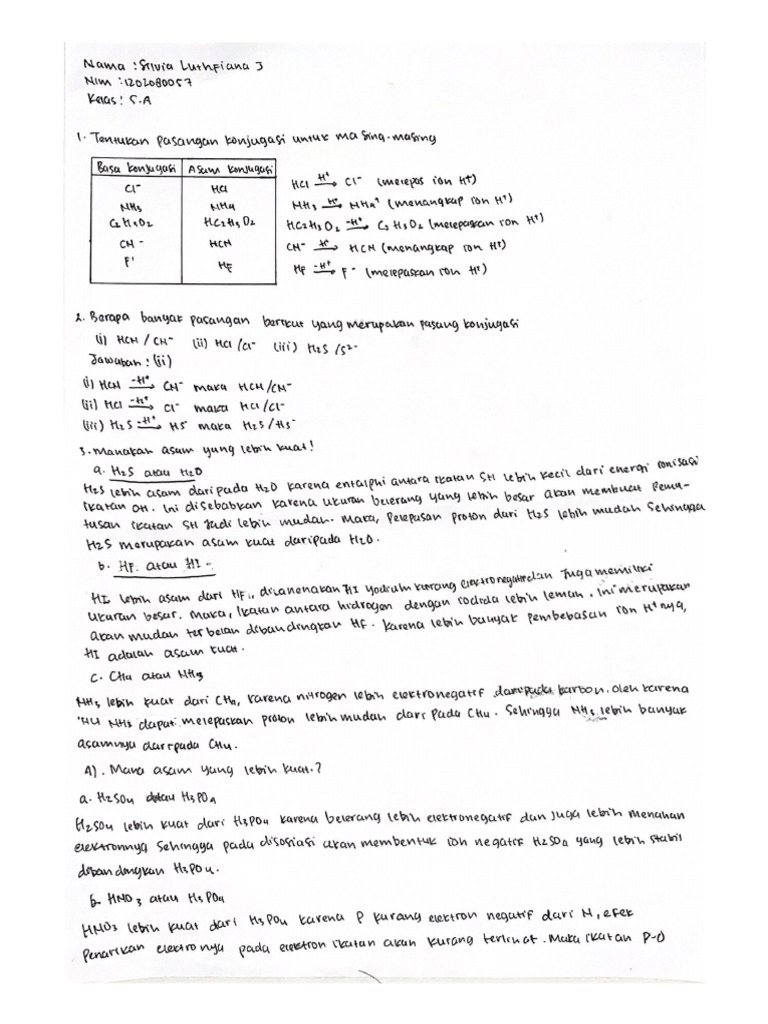 Nama : Silvia Luthfiana J
Nim : 1202080057
Kelas : 5.A
1. Tentukan pasangan konjugasi untuk masing-masing
Basa konjugasi Asam konjugasi
Cl⁻ HCl
NH₃ NH₄
C₂H₃O₂ HC₂H₃O₂
CN⁻ HCN
F⁻ HF
HCl –H⁺→ Cl⁻ (melepas ion H⁺)
NH₃ H⁺→ NH₄⁺ (menangkap ion H⁺)
HC₂H₃O₂ –H⁺→ C₂H₃O₂ (melepaskan ion H⁺)
CN⁻ H⁺→ HCN (menangkap ion H⁺)
HF –H⁺→ F⁻ (melepaskan ion H⁺)
2. Berapa banyak pasangan berikut yang merupakan pasang konjugasi
(i) HCN / CN⁻ (ii) HCl / Cl⁻ (iii) H₂S / S²⁻
Jawaban : (ii)
(i) HCN –H⁺→ CN⁻ maka HCN/CN⁻
(ii) HCl –H⁺→ Cl⁻ maka HCl/Cl⁻
(iii) H₂S –H⁺→ HS⁻ maka H₂S/HS⁻
3. Manakan asam yang lebih kuat!
a. H₂S atau H₂O
H₂S lebih asam daripada H₂O karena entalphi antara ikatan SH lebih kecil dari energi ionisasi
ikatan OH. Ini disebabkan karena ukuran belerang yang lebih besar akan membuat pemu-
tusan ikatan SH jadi lebih mudah. Maka, pelepasan proton dari H₂S lebih mudah sehingga
H₂S merupakan asam kuat daripada H₂O.
b. HF atau HI
HI lebih asam dari HF, dikarenakan HI yodium kurang elektronegatif dan juga memiliki
ukuran besar. Maka, ikatan antara hidrogen dengan iodida lebih lemah. Ini merupakan
akan mudah terbelah dibandingkan HF. Karena lebih banyak pembebasan ion H⁺nya,
HI adalah asam kuat.
c. CH₄ atau NH₃
NH₃ lebih kuat dari CH₄, karena nitrogen lebih elektronegatif daripada karbon. Oleh karena
itu NH₃ dapat melepaskan proton lebih mudah dari pada CH₄. Sehingga NH₃ lebih banyak
asamnya daripada CH₄.
4). Mana asam yang lebih kuat?
a. H₂SO₄ atau H₃PO₄
H₂SO₄ lebih kuat dari H₃PO₄ karena belerang lebih elektronegatif dan juga lebih menahan
elektronnya sehingga pada disosiasi akan membentuk ion negatif H₂SO₄ yang lebih stabil
dibandingkan H₃PO₄.
b. HNO₃ atau H₃PO₄
HNO₃ lebih kuat dari H₃PO₄ karena P kurang elektron negatif dari N, efek
penarikan elektronya pada elektron ikatan akan kurang terlihat. Maka ikatan P-O